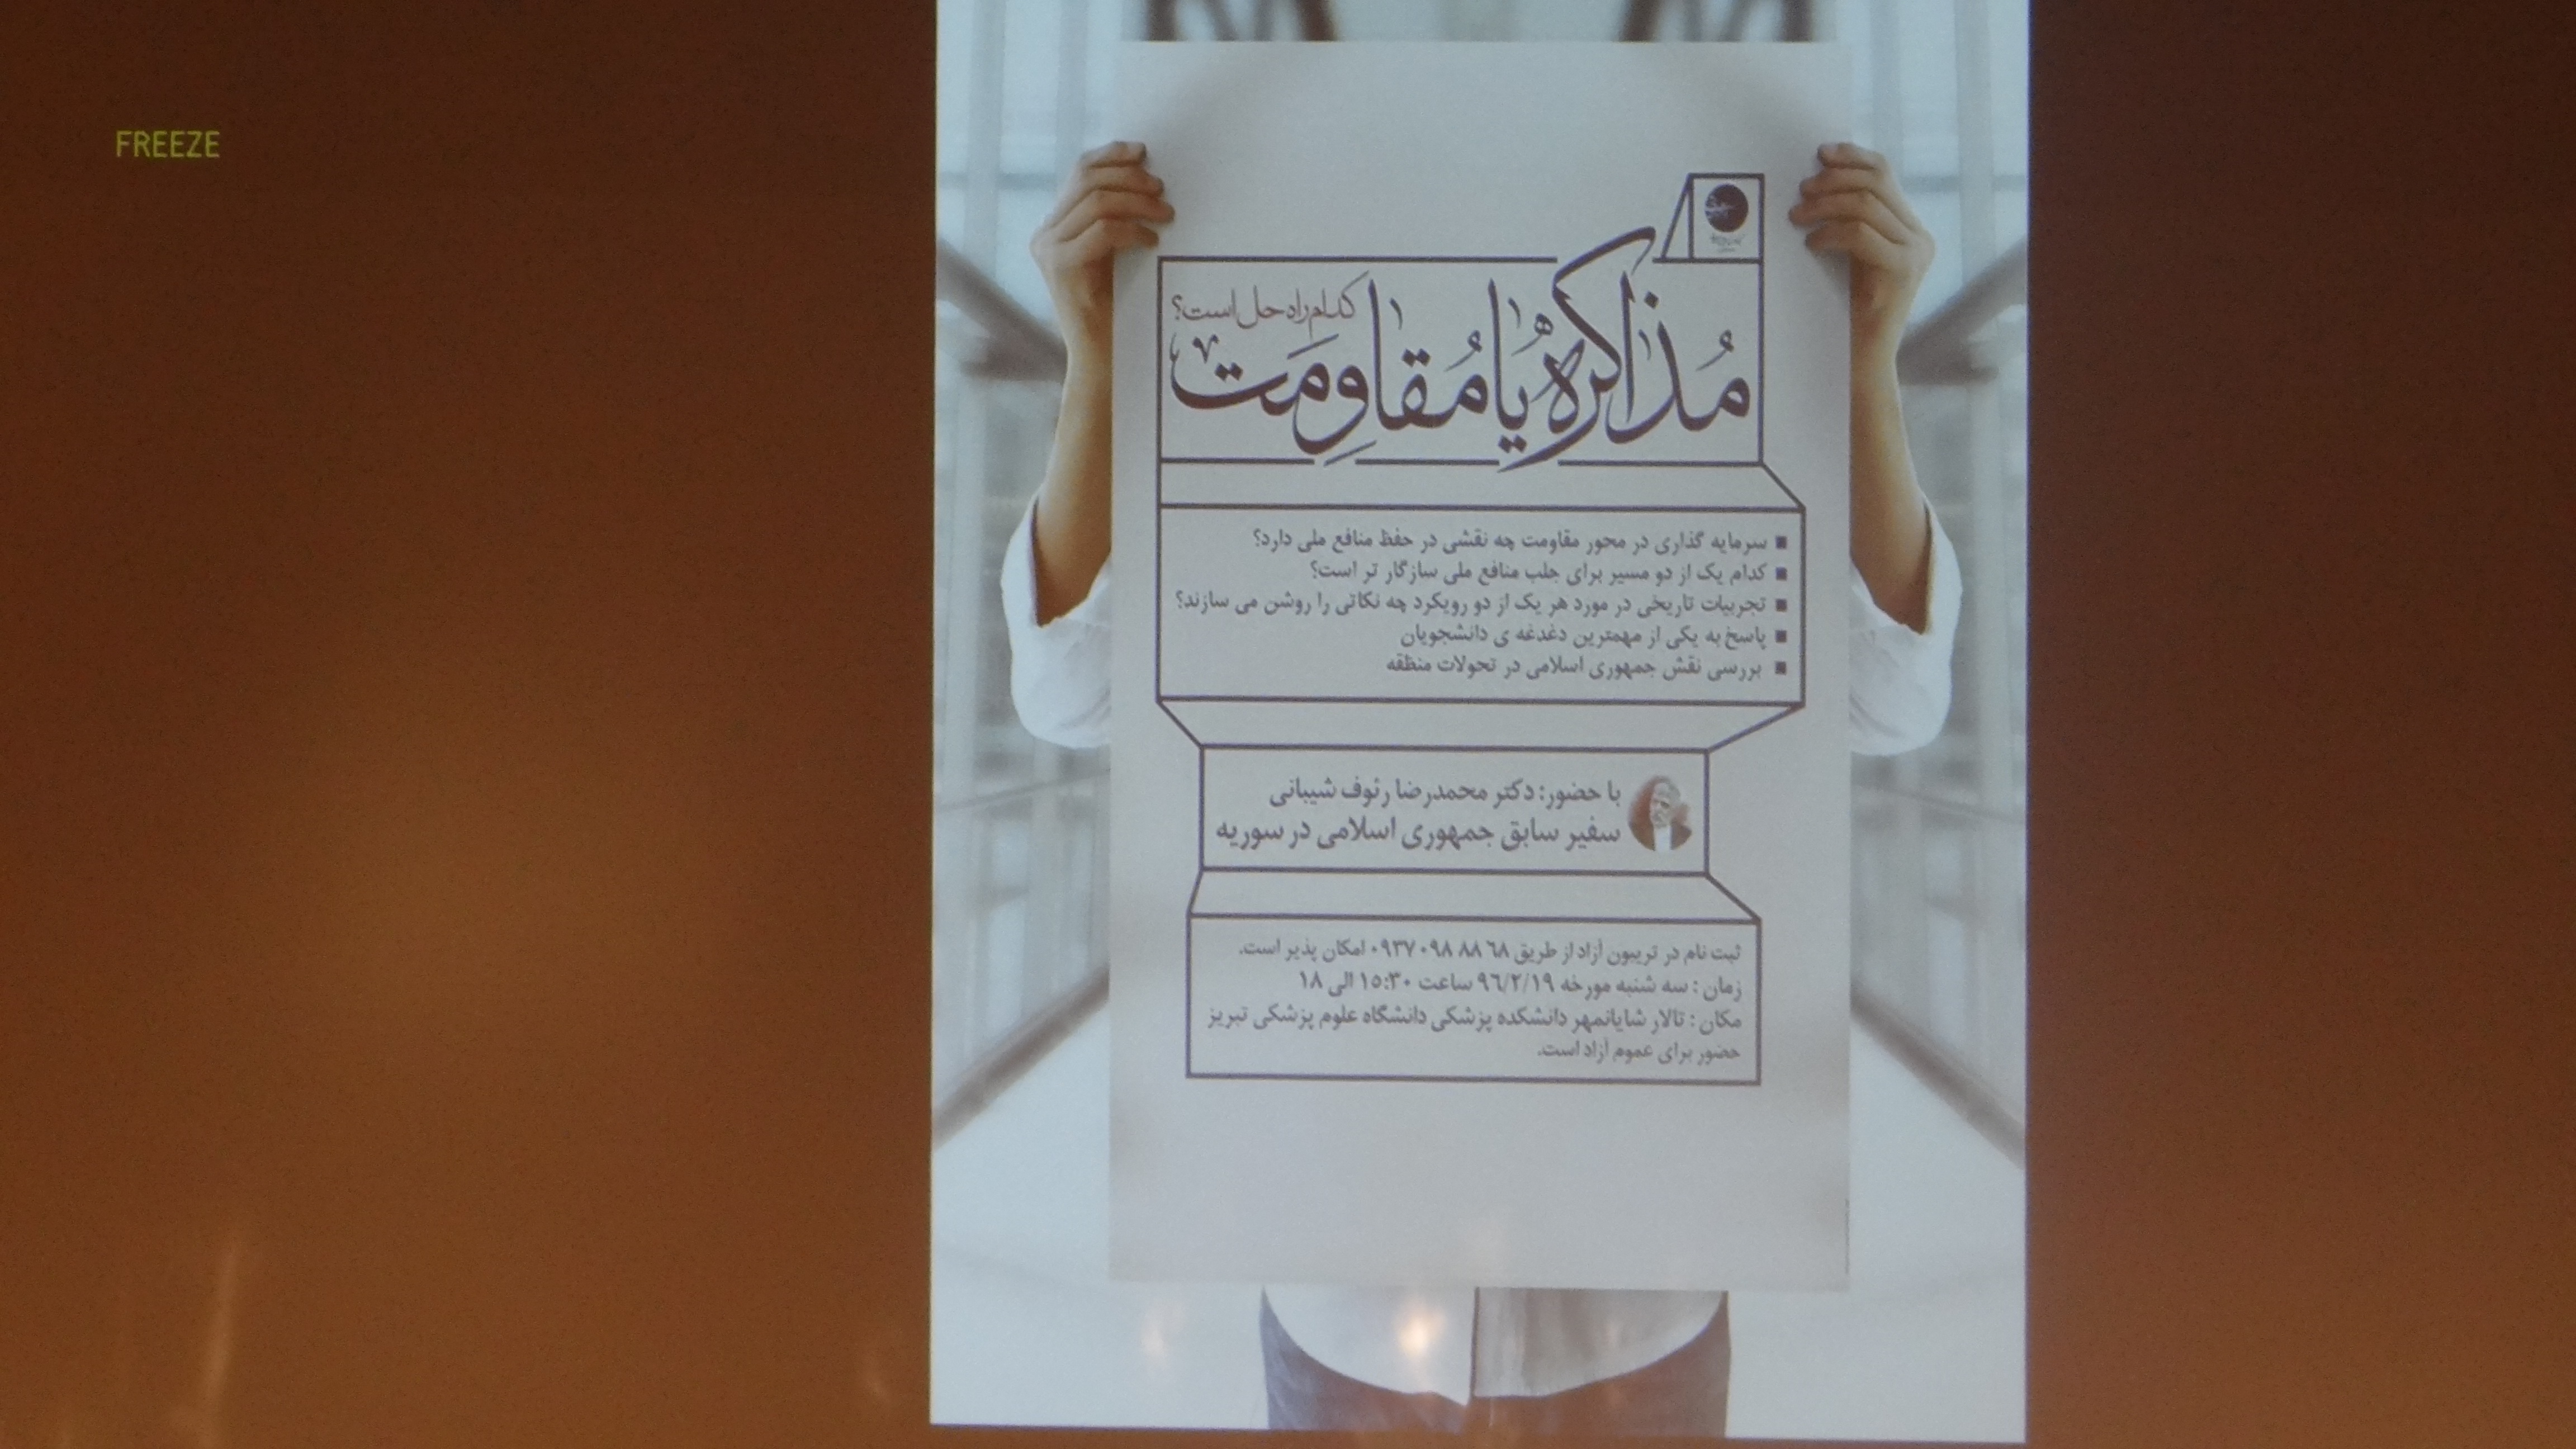 FREEZE
مُذاکره یا مُقاوِمَت
کدام راه حل است؟
سرمایه گذاری در محور مقاومت چه نقشی در حفظ منافع ملی دارد؟
کدام یک از دو مسیر برای جلب منافع ملی سازگار تر است؟
تجربیات تاریخی در مورد هر یک از دو رویکرد چه نکاتی را روشن می سازند؟
پاسخ به یکی از مهمترین دغدغه ی دانشجویان
بررسی نقش جمهوری اسلامی در تحولات منطقه
با حضور: دکتر محمدرضا رئوف شیبانی
سفیر سابق جمهوری اسلامی در سوریه
ثبت نام در تریبون آزاد از طریق ۰۹۳۷۰۹۸ ۸۸ ۶۸ امکان پذیر است.
زمان : سه شنبه مورخه ۹۶/۲/۱۹ ساعت ۱۵:۳۰ الی ۱۸
مکان : تالار شایانمهر دانشکده پزشکی دانشگاه علوم پزشکی تبریز
حضور برای عموم آزاد است.